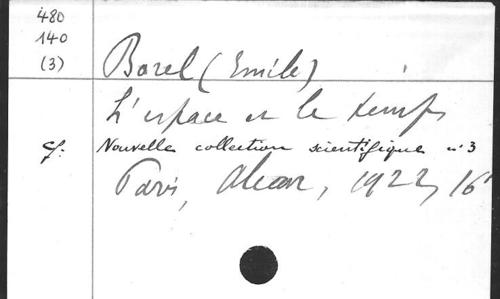 480
140
(3)
Borel (Emile)
L'espace et le temps
cf. Nouvelle collection scientifique n° 3
Paris, Alcan, 1922, 16°